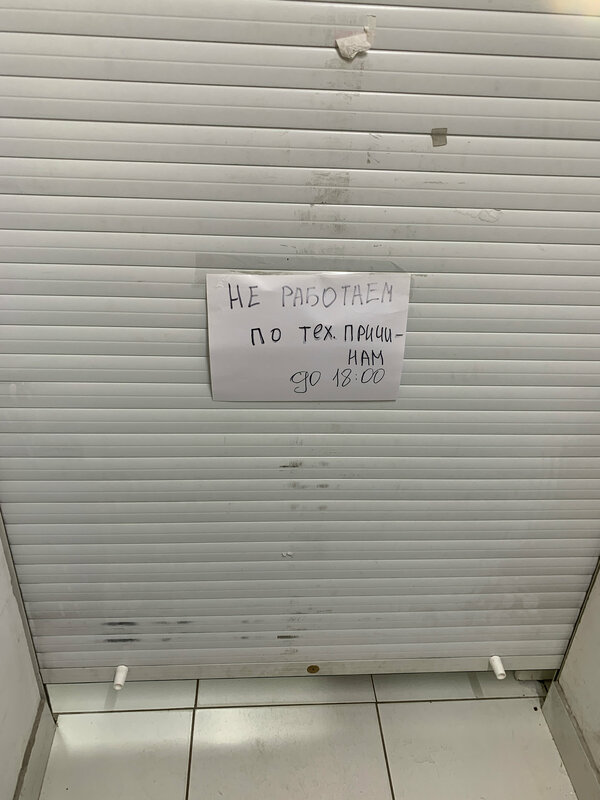 НЕ РАБОТАЕМ
ПО ТЕХ. ПРИЧИ-
НАМ
до 18:00